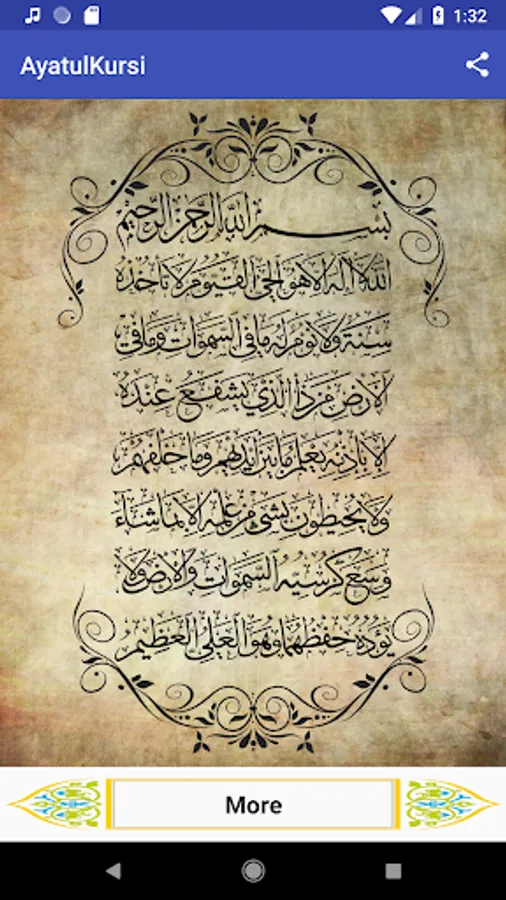 1:32
AyatulKursi
بسم الله الرحمن الرحيم
الله لا إله إلا هو الحي القيوم لا تأخذه
سنة ولا نوم له ما في السموات وما في
الأرض من ذا الذي يشفع عنده
إلا بإذنه يعلم ما بين أيديهم وما خلفهم
ولا يحيطون بشيء من علمه إلا بما شاء
وسع كرسيه السموات والأرض ولا
يؤده حفظهما وهو العلي العظيم
More